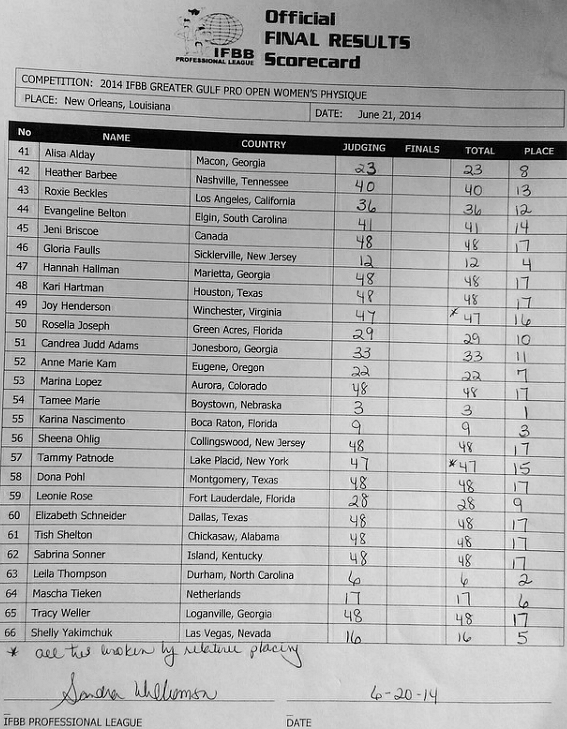 IFBB
PROFESSIONAL LEAGUE
Official
FINAL RESULTS
Scorecard
COMPETITION: 2014 IFBB GREATER GULF PRO OPEN WOMEN'S PHYSIQUE
PLACE: New Orleans, Louisiana DATE: June 21, 2014
No NAME COUNTRY JUDGING FINALS TOTAL PLACE
41 Alisa Alday Macon, Georgia 23 23 8
42 Heather Barbee Nashville, Tennessee 40 40 13
43 Roxie Beckles Los Angeles, California 36 36 12
44 Evangeline Belton Elgin, South Carolina 41 41 14
45 Jeni Briscoe Canada 48 48 17
46 Gloria Faulls Sicklerville, New Jersey 12 12 4
47 Hannah Hallman Marietta, Georgia 48 48 17
48 Kari Hartman Houston, Texas 48 48 17
49 Joy Henderson Winchester, Virginia 47 *47 16
50 Rosella Joseph Green Acres, Florida 29 29 10
51 Candrea Judd Adams Jonesboro, Georgia 33 33 11
52 Anne Marie Kam Eugene, Oregon 22 22 7
53 Marina Lopez Aurora, Colorado 48 48 17
54 Tamee Marie Boystown, Nebraska 3 3 1
55 Karina Nascimento Boca Raton, Florida 9 9 3
56 Sheena Ohlig Collingswood, New Jersey 48 48 17
57 Tammy Patnode Lake Placid, New York 47 *47 15
58 Dona Pohl Montgomery, Texas 48 48 17
59 Leonie Rose Fort Lauderdale, Florida 28 28 9
60 Elizabeth Schneider Dallas, Texas 48 48 17
61 Tish Shelton Chickasaw, Alabama 48 48 17
62 Sabrina Sonner Island, Kentucky 48 48 17
63 Leila Thompson Durham, North Carolina 6 6 2
64 Mascha Tieken Netherlands 17 17 6
65 Tracy Weller Loganville, Georgia 48 48 17
66 Shelly Yakimchuk Las Vegas, Nevada 16 16 5
* all ties broken by relative placing
Sandra Williamson 6-20-14
IFBB PROFESSIONAL LEAGUE DATE